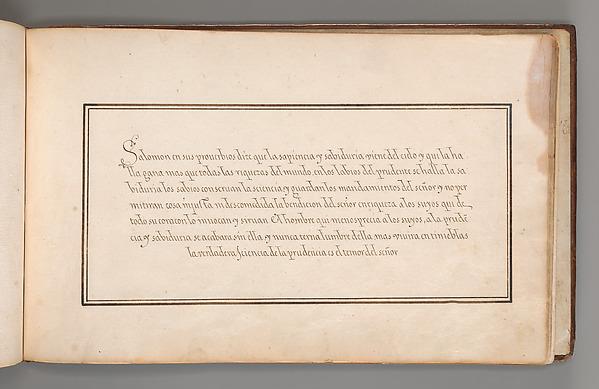 Salomon en sus prouerbios dize que la sapiencia y sabiduria viene del cielo y qui la ha
lla gana mas que todas las riquezas del mundo en los labios del prudente se halla la sa
biduria los sabios conseruan la sciencia y guardan los mandamientos del señor y no per
mitiran cosa injusta ni descomedida la bendicion del señor enriqueze a los suyos que de
todo su coracon lo inuocan y siruan El hombre que menosprecia a los suyos, a la prudē
cia y sabiduria se acabara sin ella y nunca terna lumbre della mas viuira en tinieblas
la verdadera sciencia de la prudencia es el temor del señor